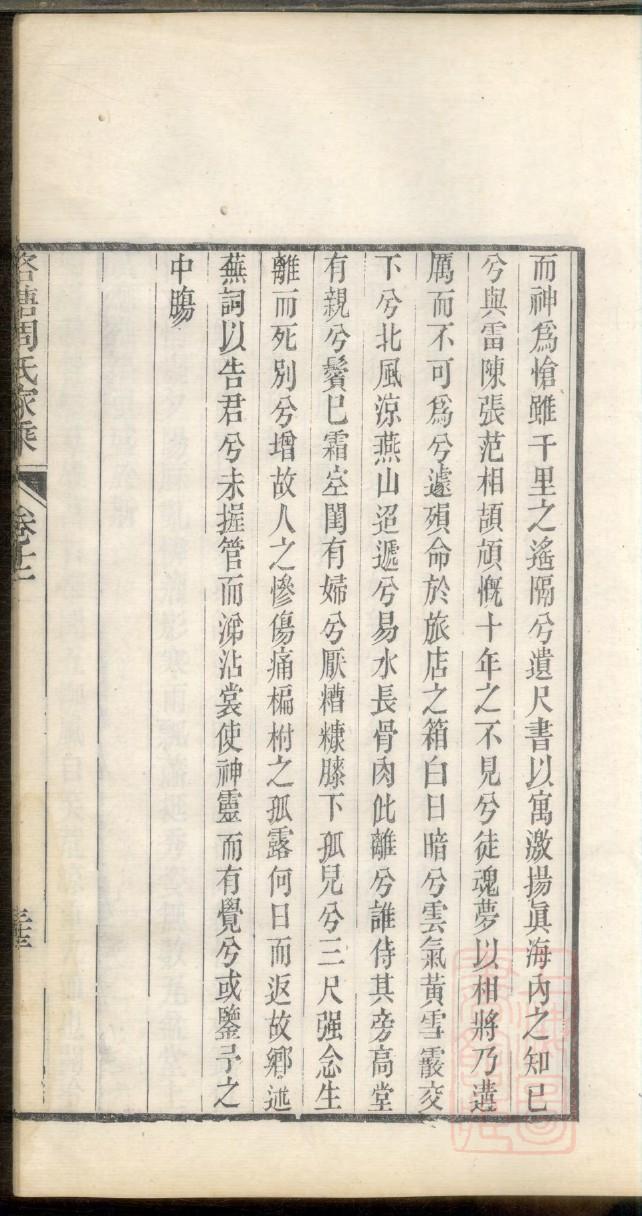 而神爲愴雖千里之遙隔兮遺尺書以寓激揚眞海內之知已
兮與雷陳張范相頡頏慨十年之不見兮徒魂夢以相將乃遘
厲而不可爲兮遽殞命於旅店之箱白日暗兮雲氣黃雪霰交
下兮北風涼燕山迢遞兮易水長骨肉此離兮誰侍其旁高堂
有親兮鬢巳霜空閨有婦兮厭糟糠膝下孤兒兮三尺强念生
離而死別兮增故人之慘傷痛楄柎之孤露何日而返故鄉述
蕪詞以告君兮未握管而涕沾裳使神靈而有覺兮或鑒予之
中腸
塘周氏家乘
卷十二